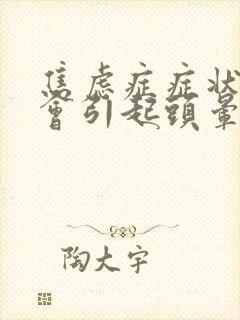 焦虑症症状
會引起頭暈
陶大宇